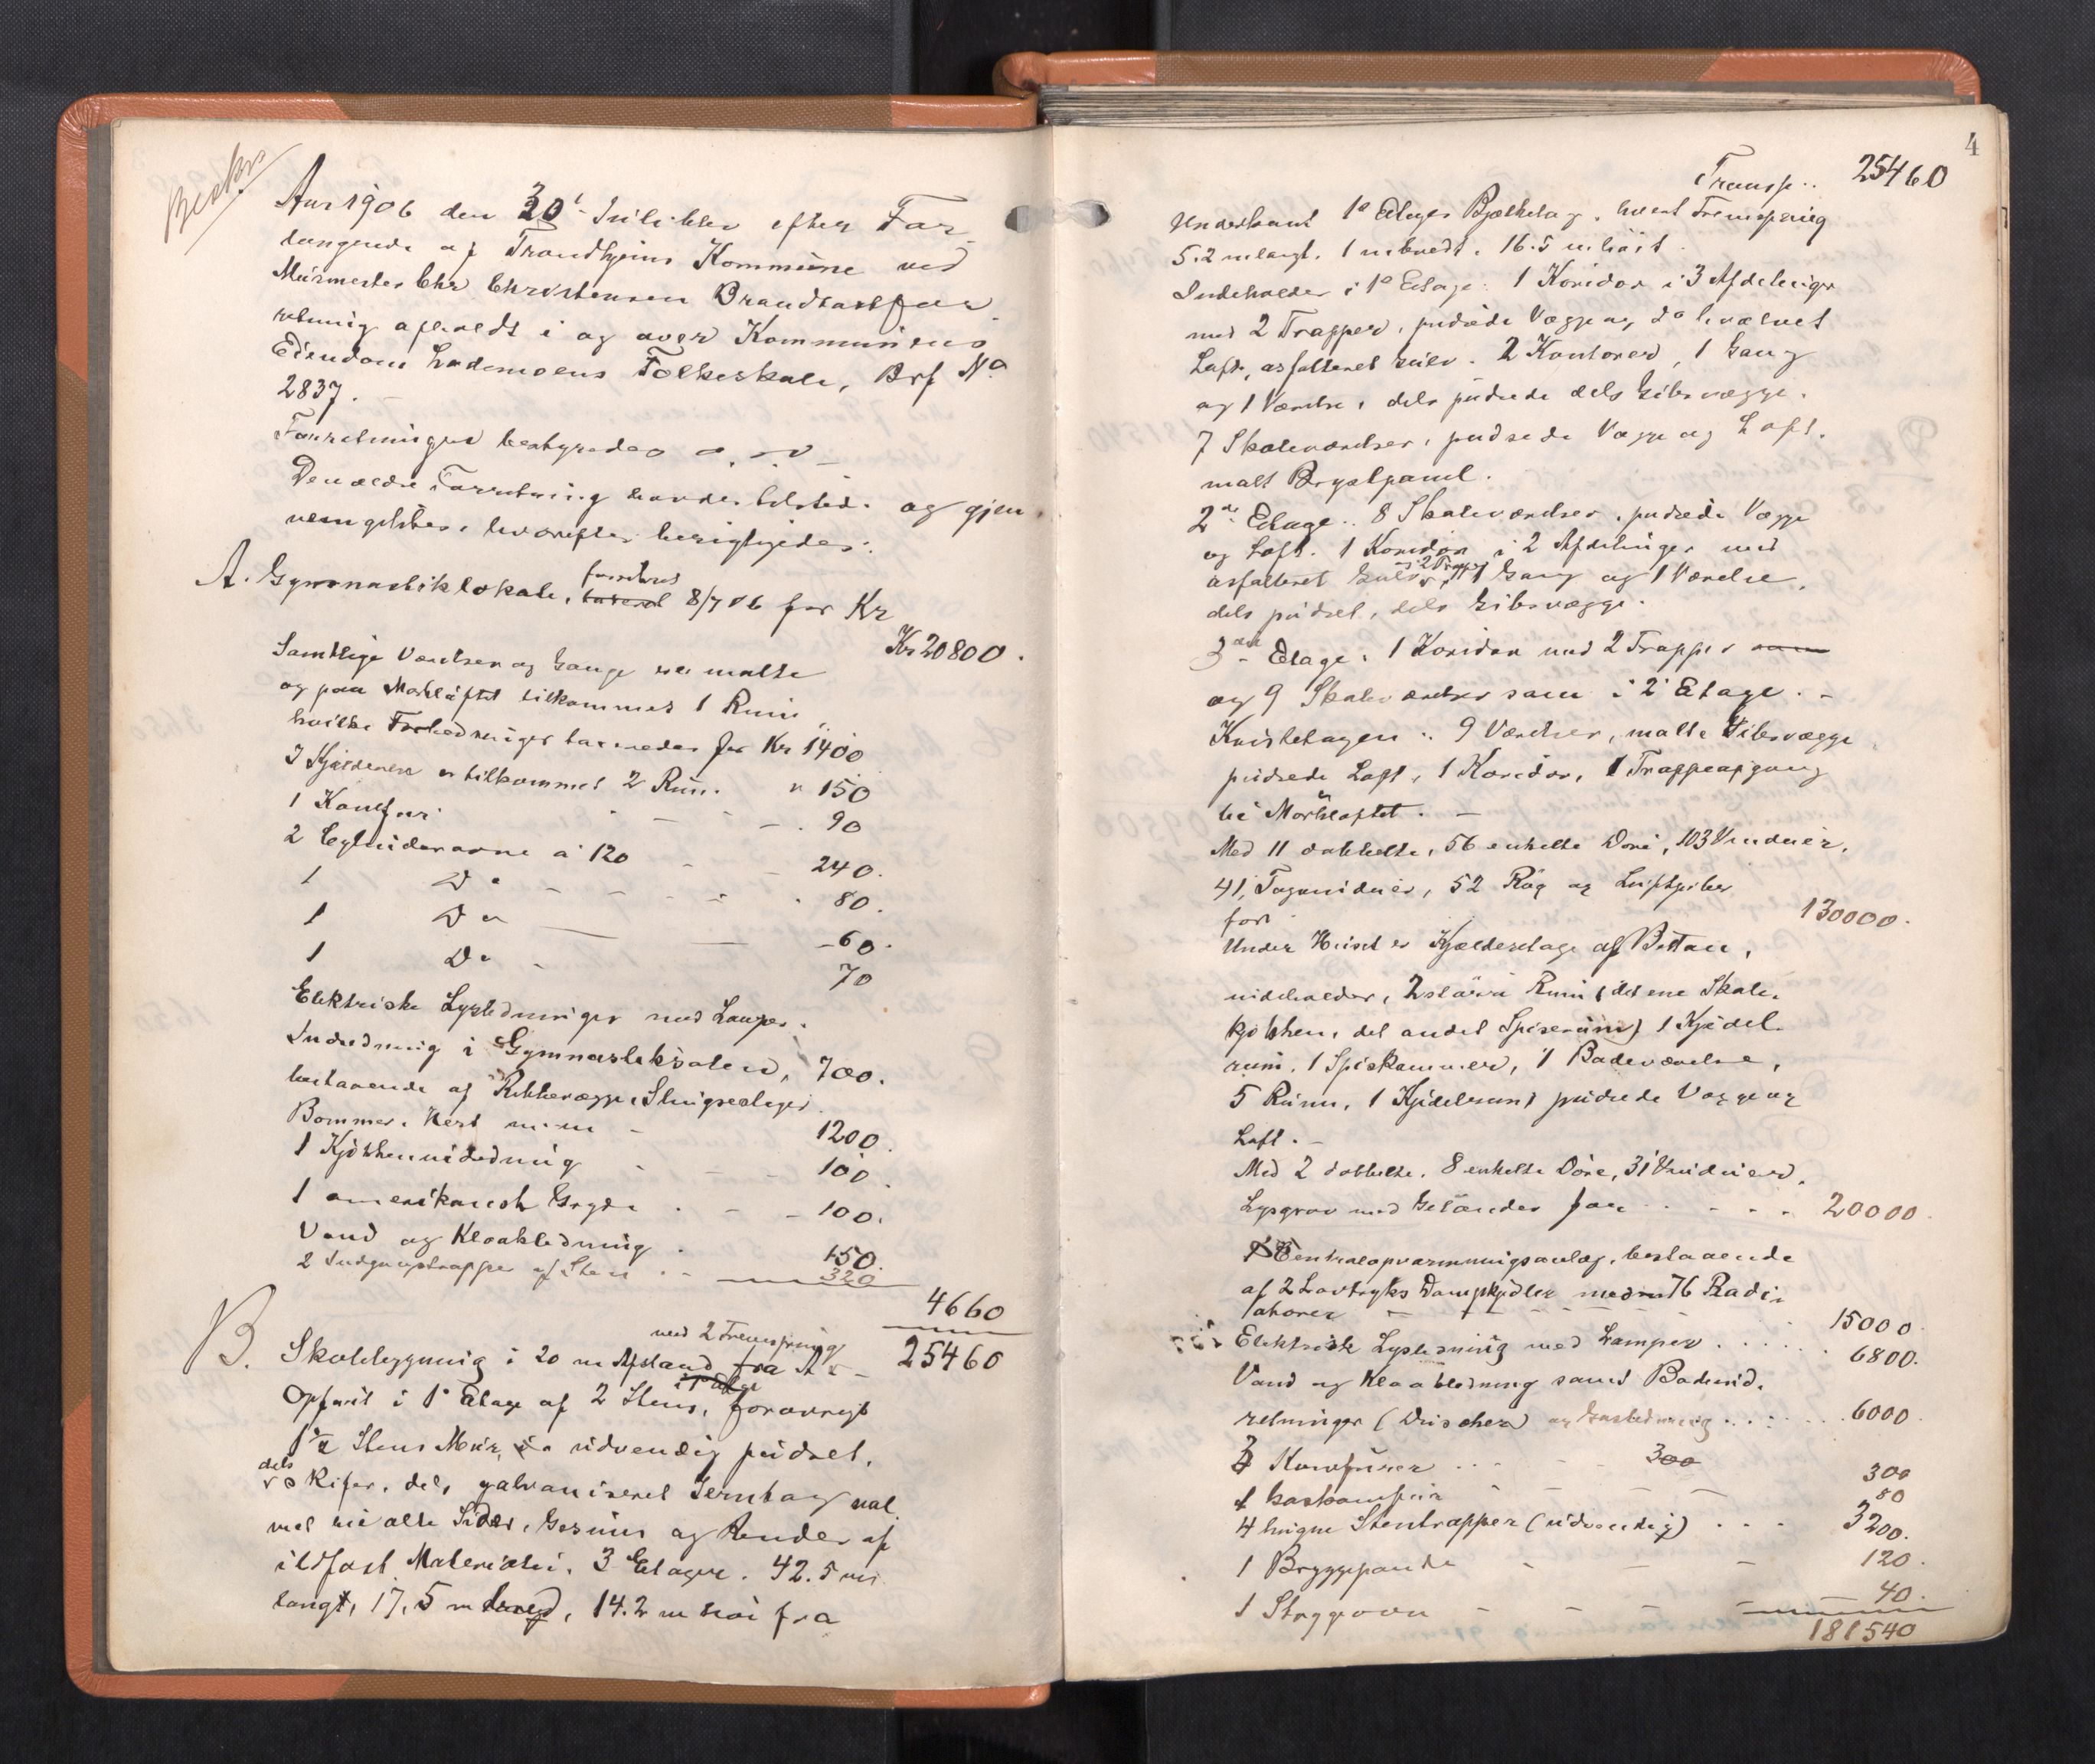 Beskr
Aar 1906 den 30t Juli blev efter For-
langende af Trondhjems Kommune ved
Muurmester Chr Christensen Brandtaxtfor-
retning afholdt i og over Kommunens
Eiendom Lademoens Folkeskole, Brf No
2837.
Forretningen bestyredes o. s. v.
Den ældre Forretning havdes tilstede og gjen-
nemgikkes, hvorefter berigtigedes:
A. Gymnastiklokale, forhen taxeret 8/7 06 for Kr
Kr 20800.
Samtlige Værelser og Gange er malte
og paa Mørkloftet tilkommet 1 Rum,
hvilke Forbedringer taxeredes for Kr 1400
I Kjælderen er tilkommet 2 Rum " 150
1 Komfur - - - 90
2 Cylinderovne a 120 - 240.
1 Do - - - - 80.
1 Do - 60.
1 Do - 70
Elektriske Lysledninger med Lamper. 700.
Indredning i Gymnastiksalen,
bestaaende af Ribbevægge, Stiger
Bomme, Hest m. m - 1200.
1 Kjøkkenindredning - - - 100.
1 amerikansk Gryde . - - 100.
Vand og Kloakledning . 150.
2 Indgangstrapper af Sten . - 320
4660
25460
B. Skolebygning i 20 m Afstand fra A - med 2 Fremspring
Opført i 1e Etage af 2 Stens, forøvrigt
1½ Stens Muur, udvendig pudset,
dels Skifer, dels galvaniseret Jerntag val-
met til alle Sider, Gesims og Render af
ildfast Materiale. 3 Etager. 42.5 m
langt, 17.5 m bred, 14.2 m høi fra
4
Transp.. 25460
Underkant 1e Etages Bjælkelag, hvert Fremspring
5.2 m langt, 1 m bredt, 16.5 m høit.
Indeholder i 1e Etage: 1 Koridor i 3 Afdelinger
med 2 Trapper, pudsede Vægge og do hvælvet
Loft, asfalteret Gulv. 2 Kontorer, 1 Gang
og 1 Værelse, dels pudsede dels Gibsvægge.
7 Skoleværelser, pudsede Vægge og Loft,
malt Brystpanel.
2den Etage: 8 Skoleværelser, pudsede Vægge
og Loft. 1 Koridor i 2 Afdelinger med
asfalteret Gulv og 2 Trapper, 1 Gang og 1 Værelse,
dels pudset, dels Gibsvægge.
3die Etage: 1 Koridor med 2 Trapper som
og 9 Skoleværelser som i 2' Etage. -
Kvistetagen: 9 Værelser, malte Gibsvægge,
pudsede Loft, 1 Koridor, 1 Trappeopgang
til Mørkloftet. -
Med 11 dobbelte, 56 enkelte Døre, 103 Vinduer,
41 Tagvinduer, 52 Røg og Luftpiber
for 130000.
Under Huset er Kjælderetage af Beton,
indeholder, 2 større Rum (det ene Skole-
kjøkken, det andet Spiserum) 1 Kjedel-
rum, 1 Spiskammer, 1 Badeværelse,
5 Rum, 1 Kjedelrum, pudsede Vægge og
Loft. -
Med 2 dobbelte, 8 enkelte Døre, 31 Vinduer.
Lysgrav med Gelænder for . . . . 20000.
1 Centralopvarmningsanlæg, bestaaende
af 2 Lavtryks Dampkjedler med 76 Radi-
atorer - - - - - 15000
Elektrisk Lysledning med Lamper . . . . . 6800.
Vand og Kloakledning samt Badeind-
retninger (Duscher) og Gasledning . . . . 6000.
3 Komfurer . . . - - 300 300
1 Gaskomfur - - - - 80
4 hugne Stentrapper (udvendig) . . . 3200.
1 Bryggepande - - - 120.
1 Strygeovn - - - - 40.
181540